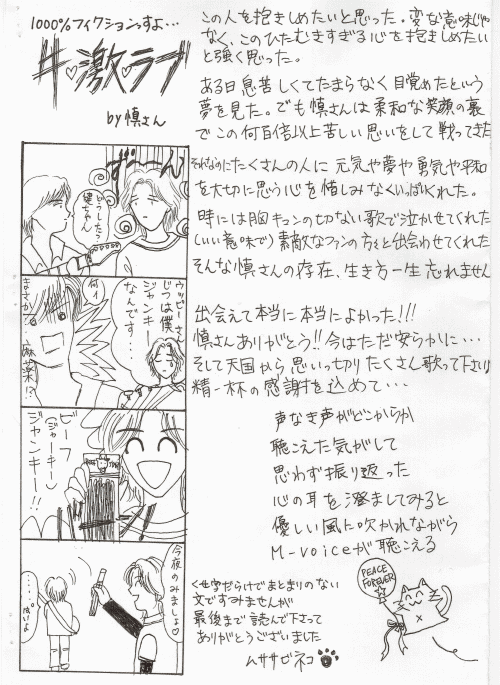 1000%フィクションっすよ…
#♡激♡ラブ
by慎さん
ず〜〜ん
どうしたの
健ちゃん
ウッピーさん
じつは僕
ジャンキー
なんです…
何イ
まさか!?
麻薬!?
ビーフ
(ジャーキー)
ジャンキー!!
今夜のみましょ♡
この人を抱きしめたいと思った。変な意味じゃ
なく、このひたむきすぎる心を抱きしめたい
と強く思った。
ある日息苦しくてたまらなく目覚めたという
夢を見た。でも慎さんは柔和な笑顔の裏
でこの何百倍以上苦しい思いをして戦ってきた
それなのにたくさんの人に元気や夢や勇気や平和
を大切に思う心を惜しみなくいっぱいくれた。
時には胸キュンの切ない歌で泣かせてくれた
(いい意味で)素敵なファンの方々と出会わせてくれた
そんな慎さんの存在、生き方一生忘れません
出会えて本当に本当によかった!!!
慎さんありがとう!!今はただ安らかに…
そして天国から思いっ切りたくさん歌って下さい
精一杯の感謝を込めて…
声なき声がどこからか
聴こえた気がして
思わず振り返った
心の耳を澄ましてみると
優しい風に吹かれながら
M-voiceが聴こえる
PEACE
FOREVER
くせ字だらけでまとまりのない
文ですみませんが
最後まで読んで下さって
ありがとうございました
ムササビネコ